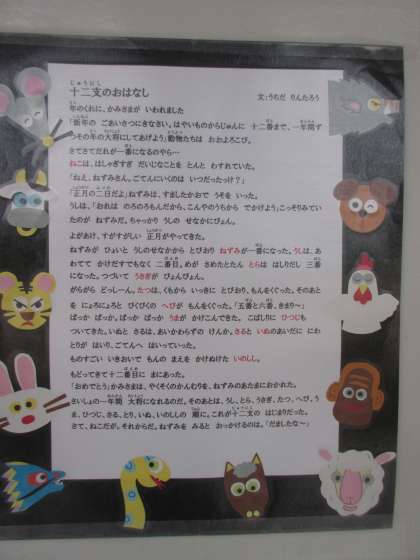 十二支のおはなし
文:うちだ りんたろう
年のくれに、かみさまが いわれました
「新年の ごあいさつにきなさい。はやいものからじゅんに 十二番まで、一年間ず
つその年の大将にしてあげよう」動物たちは おおよろこび。
さてさてだれが一番になるのやら…
ねこは、はしゃぎすぎ だいじなことを とんと わすれていた。
「ねえ、ねずみさん。ごてんにいくのは いつだったっけ？」
「正月の二日だよ」ねずみは、すましたかおで うそを いった。
うしは、「おれは のろのろもんだから、こんやのうちから でかけよう」こっそりみてい
たのが ねずみだ。ちゃっかり うしの せなかにぴょん。
よがあけ、すがすがしい 正月がやってきた。
ねずみが ひょいと うしのせなかから とびおり ねずみが一番になった。うしは、あ
わてて かけだすでもなく 二番目。めが さめたとたん とらは はしりだし 三番
になった。つづいて うさぎが ぴょんぴょん。
がらがら どっしーん。たつは、くもから いっきに とびおり、もんをくぐった。そのあと
を にょろにょろと びくびくの へびが もんをくぐった。「五番と六番、きまり〜」
ぱっか、ぱっか。ぱっか、ぱっか うまが かけこんできた。こばしりに ひつじも
ついてきた。いぬと さるは、あいかわらずの けんか。さると いぬのあいだに にわ
とりが はいり、ごてんへ はいっていった。
ものすごい いきおいで もんの まえを かけぬけた いのしし。
もどってきて十二番目に まにあった。
「おめでとう」かみさまは、やくそくのかんむりを、ねずみのあたまにおかれた。
さいしょの一年間 大将になれるのだ。そのあとは、うし、とら、うさぎ、たつ、へび、う
ま、ひつじ、さる、とり、いぬ、いのししの 順に。これが十二支の はじまりだった。
さて、ねこだが、それからだ。ねずみを みると おっかけるのは。「だましたな〜」